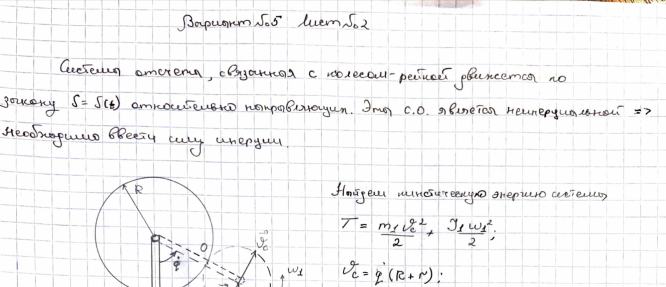 Вариант №5 Лист №2
Система отсчета, связанная с колесом-рейкой движется по
закону S = S(t) относительно направляющих. Эта с.о. является неинерциальной =>
необходимо ввести силу инерции.
Найдем кинетическую энергию системы
R
T = m₁υc²/2 + J₁ω₁²/2;
O
ω₁
υc = q̇(R+r);
q̇